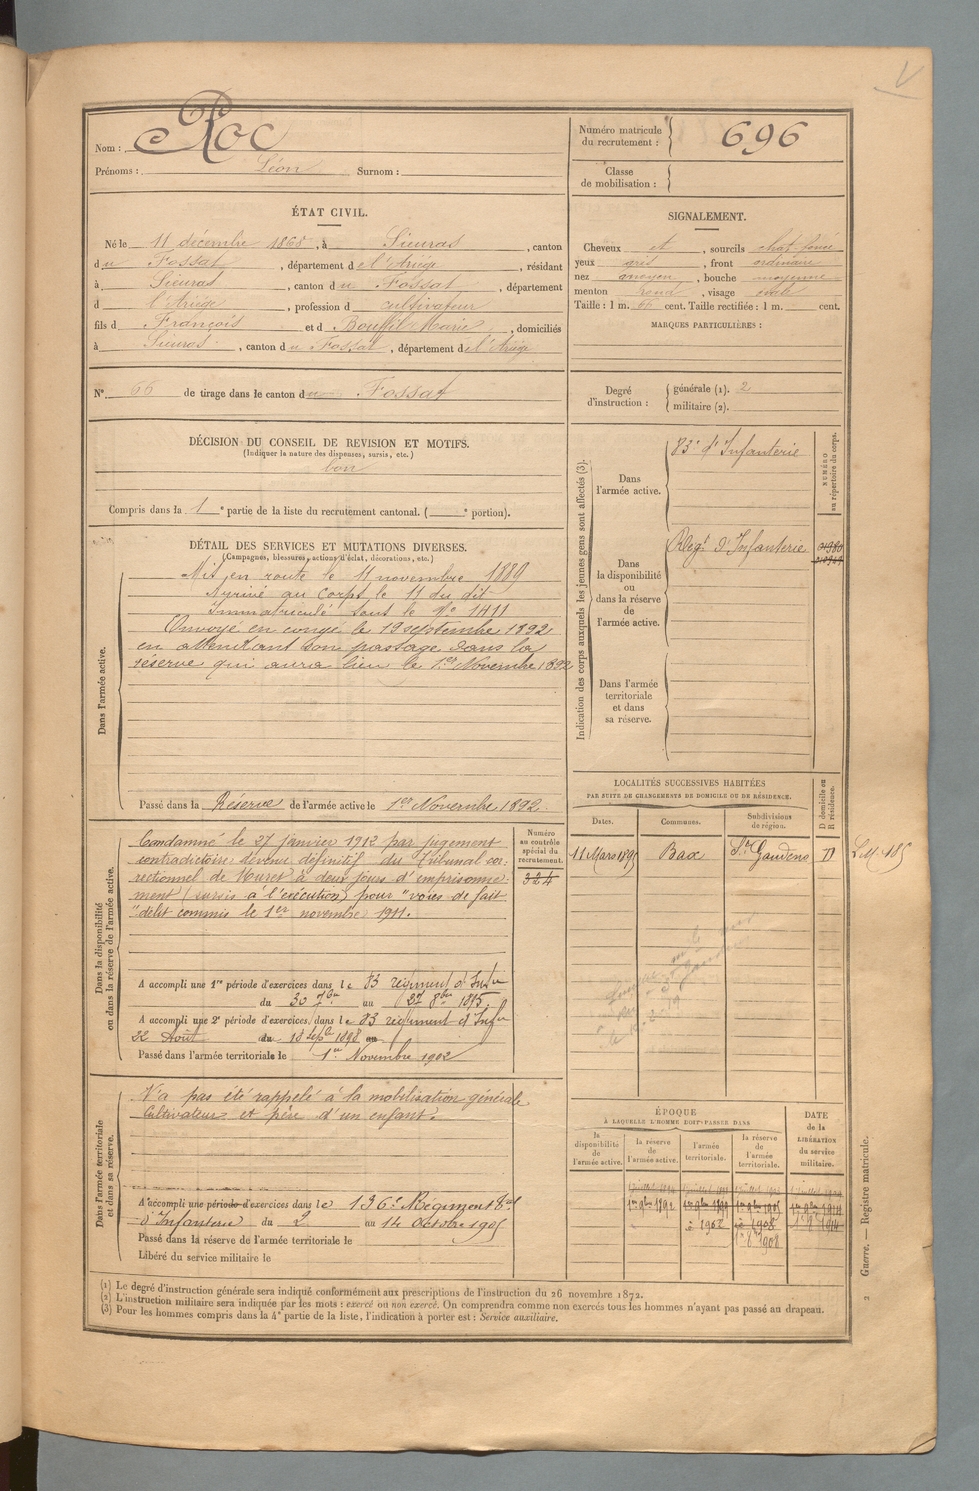 Nom : Roc
Prénoms : Léon Surnom :
Numéro matricule du recrutement : 696
Classe de mobilisation :
ÉTAT CIVIL.
Né le 11 décembre 1868, à Sieuras, canton
du Fossat, département de l'Ariége, résidant
à Sieuras, canton du Fossat, département
d l'Ariége, profession d cultivateur
fils d François et d Bouffil Marie, domiciliés
à Sieuras, canton du Fossat, département de l'Ariége
SIGNALEMENT.
Cheveux et, sourcils chat. foncé
yeux gris, front ordinaire
nez moyen, bouche moyenne
menton rond, visage ovale
Taille : 1 m. 66 cent. Taille rectifiée : 1 m. cent.
MARQUES PARTICULIÈRES :
N° 66 de tirage dans le canton du Fossat
Degré d'instruction : générale (1). 2
militaire (2).
DÉCISION DU CONSEIL DE REVISION ET MOTIFS.
(Indiquer la nature des dispenses, sursis, etc.)
bon
Compris dans la 1e partie de la liste du recrutement cantonal. ( e portion).
DÉTAIL DES SERVICES ET MUTATIONS DIVERSES.
(Campagnes, blessures, actions d'éclat, décorations, etc.)
Dans l'armée active.
Mis en route le 11 novembre 1889
Arrivé au corps le 11 du dit
Immatriculé sous le N° 1411
Envoyé en congé le 19 septembre 1892
en attendant son passage dans la
réserve qui aura lieu le 1er Novembre 1892
Passé dans la Réserve de l'armée active le 1er Novembre 1892
Indication des corps auxquels les jeunes gens sont affectés (3).
NUMÉRO au répertoire du corps.
Dans l'armée active.
83e d'Infanterie
Dans la disponibilité ou dans la réserve de l'armée active.
Régt d'Infanterie
Dans l'armée territoriale et dans sa réserve.
LOCALITÉS SUCCESSIVES HABITÉES
PAR SUITE DE CHANGEMENTS DE DOMICILE OU DE RÉSIDENCE.
Dates. Communes. Subdivisions de région. D domicile ou R résidence.
11 Mars 1895 Bax St Gaudens D
Dans la disponibilité ou dans la réserve de l'armée active.
Numéro au contrôle spécial du recrutement.
324
Condamné le 27 janvier 1912 par jugement
contradictoire devenu définitif du Tribunal cor-
rectionnel de Muret à deux jours d'emprisonne-
ment (sursis à l'exécution) pour "voies de fait"
délit commis le 1er novembre 1911.
A accompli une 1re période d'exercices dans le 83 régiment d'Infie
du 30 7bre au 27 8bre 1895.
A accompli une 2e période d'exercices dans le 83 régiment d'Infie
22 Août du 18 Sepbre 1898 au
Passé dans l'armée territoriale le 1er Novembre 1902
Dans l'armée territoriale et dans sa réserve.
N'a pas été rappelé à la mobilisation générale
Cultivateur et père d'un enfant.
A accompli une période d'exercices dans le 136e Régiment Tal
d'Infanterie du 2 au 14 Octobre 1905
Passé dans la réserve de l'armée territoriale le
Libéré du service militaire le
ÉPOQUE
À LAQUELLE L'HOMME DOIT PASSER DANS
la disponibilité de l'armée active.
la réserve de l'armée active.
l'armée territoriale.
la réserve de l'armée territoriale.
DATE de la LIBÉRATION du service militaire.
1er 9bre 1892
1902
1908
1er 8 1908
Guerre. — Registre matricule.
2
(1) Le degré d'instruction générale sera indiqué conformément aux prescriptions de l'instruction du 26 novembre 1872.
(2) L'instruction militaire sera indiquée par les mots : exercé ou non exercé. On comprendra comme non exercés tous les hommes n'ayant pas passé au drapeau.
(3) Pour les hommes compris dans la 4e partie de la liste, l'indication à porter est : Service auxiliaire.